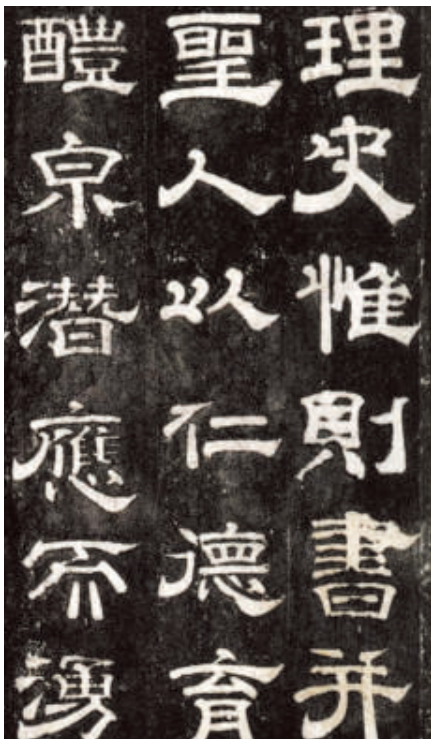 理史惟則書并
聖人以仁德育
醴泉潛應而湧